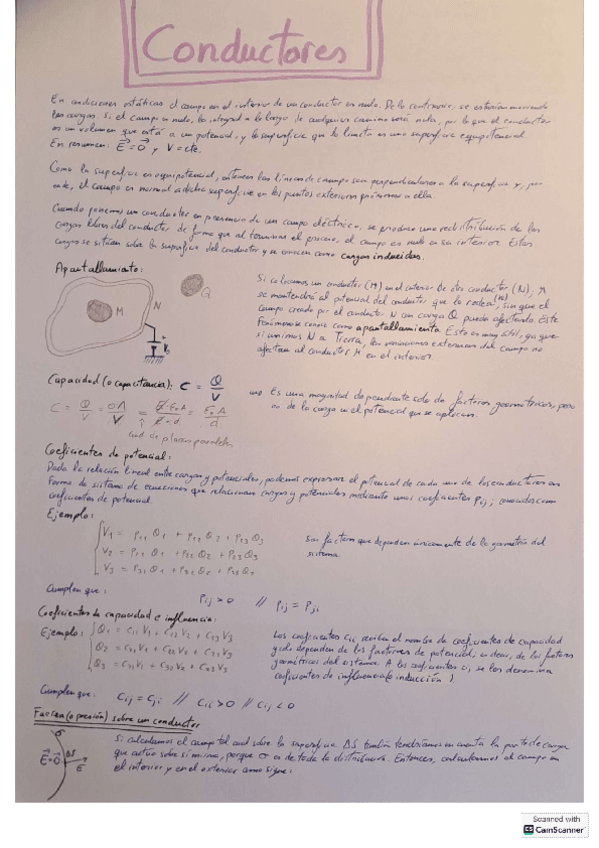 Conductores
En condiciones estáticas el campo en el interior de un conductor es nulo. De lo contrario, se estarían moviendo
las cargas. Si el campo es nulo, la integral a lo largo de cualquier camino será nula, por lo que el conductor
es un volumen que está a un potencial, y la superficie que lo limita es una superficie equipotencial.
En resumen: E⃗=0⃗ y V=cte.
Como la superficie es equipotencial, entonces las líneas de campo son perpendiculares a la superficie y, por
ende, el campo es normal a dicha superficie en los puntos exteriores próximos a ella.
Cuando ponemos un conductor en presencia de un campo eléctrico, se produce una redistribución de las
cargas libres del conductor de forma que al terminar el proceso, el campo es nulo en su interior. Estas
cargas se sitúan sobre la superficie del conductor y se conocen como cargas inducidas.
Apantallamiento:
M N Q
V₀
Si colocamos un conductor (M) en el interior de otro conductor (N), M
se mantendrá al potencial del conductor que lo rodea (N), sin que el
campo creado por el conductor N con carga Q pueda afectarle. Este
fenómeno se conoce como apantallamiento. Esto es muy útil, ya que
si unimos N a Tierra, las variaciones externas del campo no
afectan al conductor M en el interior.
Capacidad (o capacitancia): C = Q/V
Es una magnitud dependiente solo de factores geométricos, pero
no de la carga ni el potencial que se aplican.
C = Q/V = σA/V = E·ε₀·A/E·d = ε₀·A/d
cond de placas paralelas
Coeficientes de potencial:
Dada la relación lineal entre cargas y potenciales, podemos expresar el potencial de cada uno de los conductores en
forma de sistema de ecuaciones que relacionan cargas y potenciales mediante unos coeficientes Pij, conocidos como
coeficientes de potencial.
Ejemplo:
V₁ = P₁₁Q₁ + P₁₂Q₂ + P₁₃Q₃
V₂ = P₂₁Q₁ + P₂₂Q₂ + P₂₃Q₃
V₃ = P₃₁Q₁ + P₃₂Q₂ + P₃₃Q₃
Son factores que dependen únicamente de la geometría del
sistema.
Cumplen que:
Pij > 0 // Pij = Pji
Coeficientes de capacidad e influencia:
Ejemplo:
Q₁ = C₁₁V₁ + C₁₂V₂ + C₁₃V₃
Q₂ = C₂₁V₁ + C₂₂V₂ + C₂₃V₃
Q₃ = C₃₁V₁ + C₃₂V₂ + C₃₃V₃
Los coeficientes Cii reciben el nombre de coeficientes de capacidad
y solo dependen de los factores de potencial, es decir, de los factores
geométricos del sistema. A los coeficientes Cij se los denomina
coeficientes de influencia (o inducción).
Cumplen que: Cij = Cji // Cii > 0 // Cij < 0
Fuerza (o presión) sobre un conductor
σ
E⃗=0⃗ ΔS
Si calculamos el campo total sobre la superficie ΔS también tendríamos en cuenta la parte de carga
que actúa sobre sí misma, porque σ es de toda la distribución. Entonces, calculamos el campo en
el interior y en el exterior como sigue:
Scanned with
CamScanner